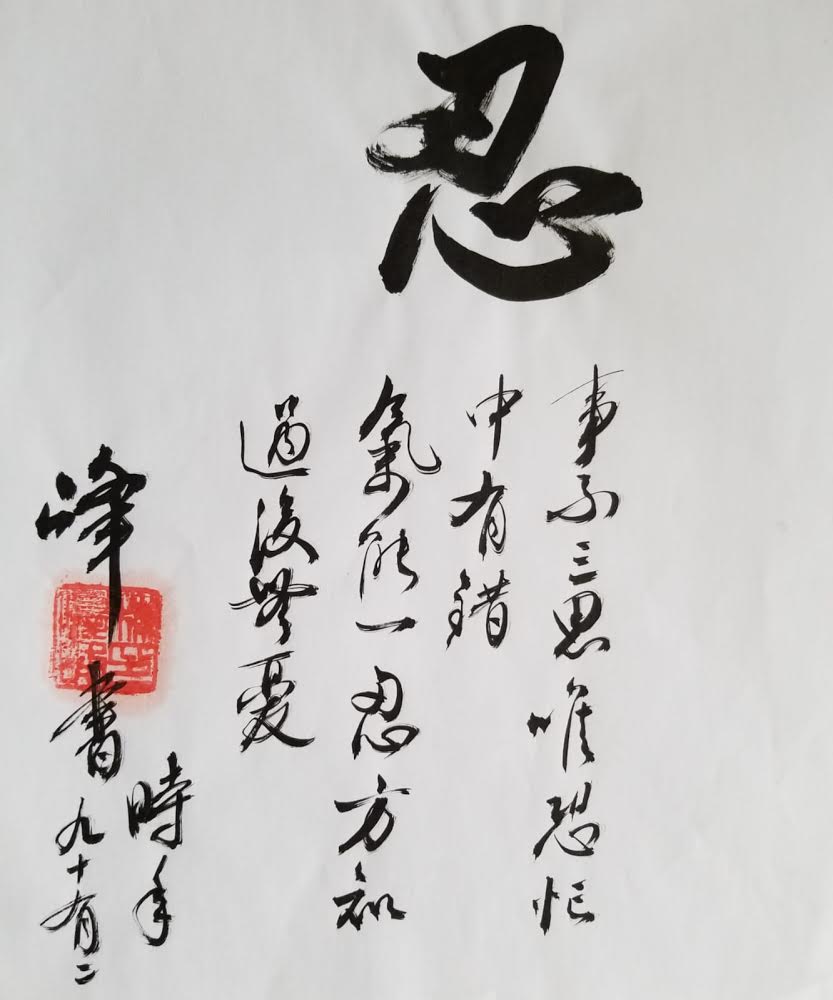 忍
事不三思唯恐忙
中有錯
氣能一忍方知
過後無憂
時年
峰書九十有二